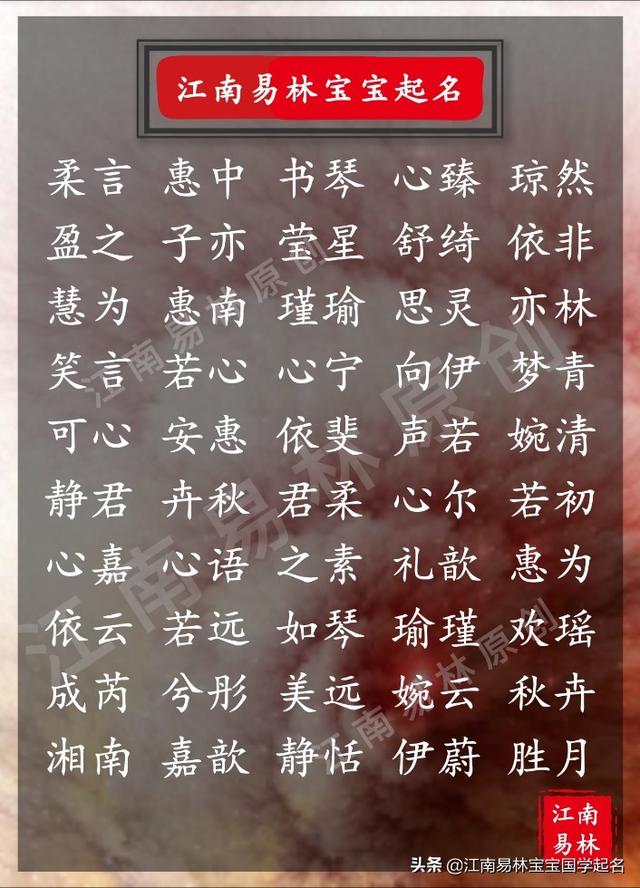 江南易林宝宝起名
柔言 惠中 书琴 心臻 琼然
盈之 子亦 莹星 舒绮 依非
慧为 惠南 瑾瑜 思灵 亦林
笑言 若心 心宁 向伊 梦青
可心 安惠 依斐 声若 婉清
静君 卉秋 君柔 心尔 若初
心嘉 心语 之素 礼歆 惠为
依云 若远 如琴 瑜瑾 欢瑶
成芮 兮彤 美远 婉云 秋卉
湘南 嘉歆 静恬 伊蔚 胜月
江南易林原创
江南易林原创
江南易林原创
江南
易林
头条 @江南易林宝宝国学起名